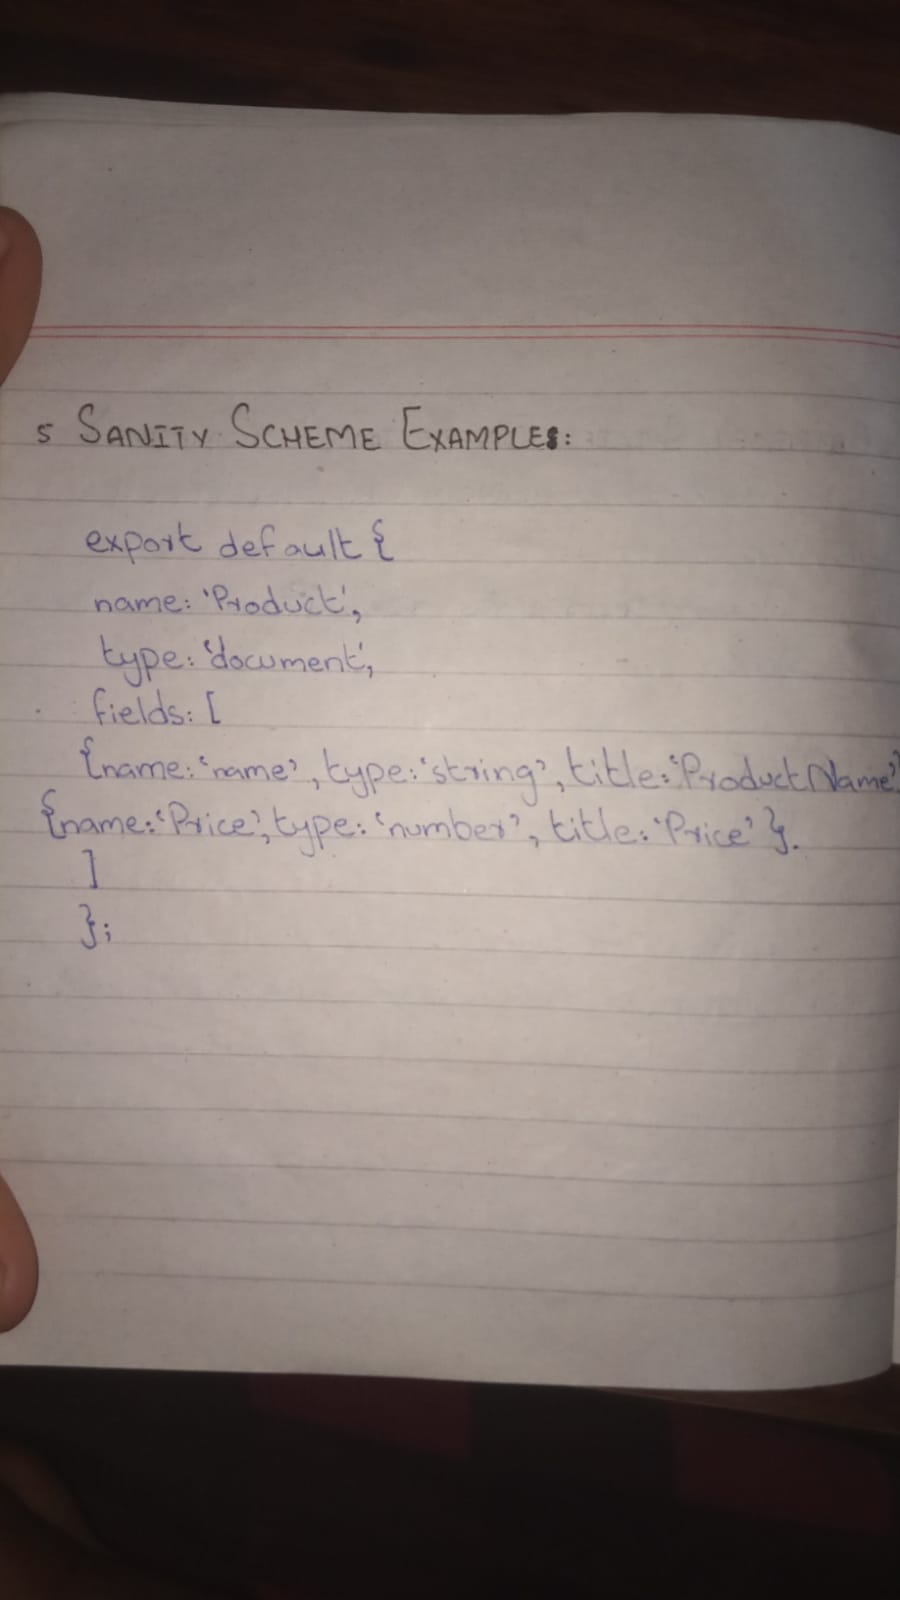 5 SANITY SCHEME EXAMPLES:
export default {
name: 'Product',
type: 'document',
fields: [
{name: 'name', type: 'string', title: 'Product Name'}
{name: 'Price', type: 'number', title: 'Price' }.
]
};